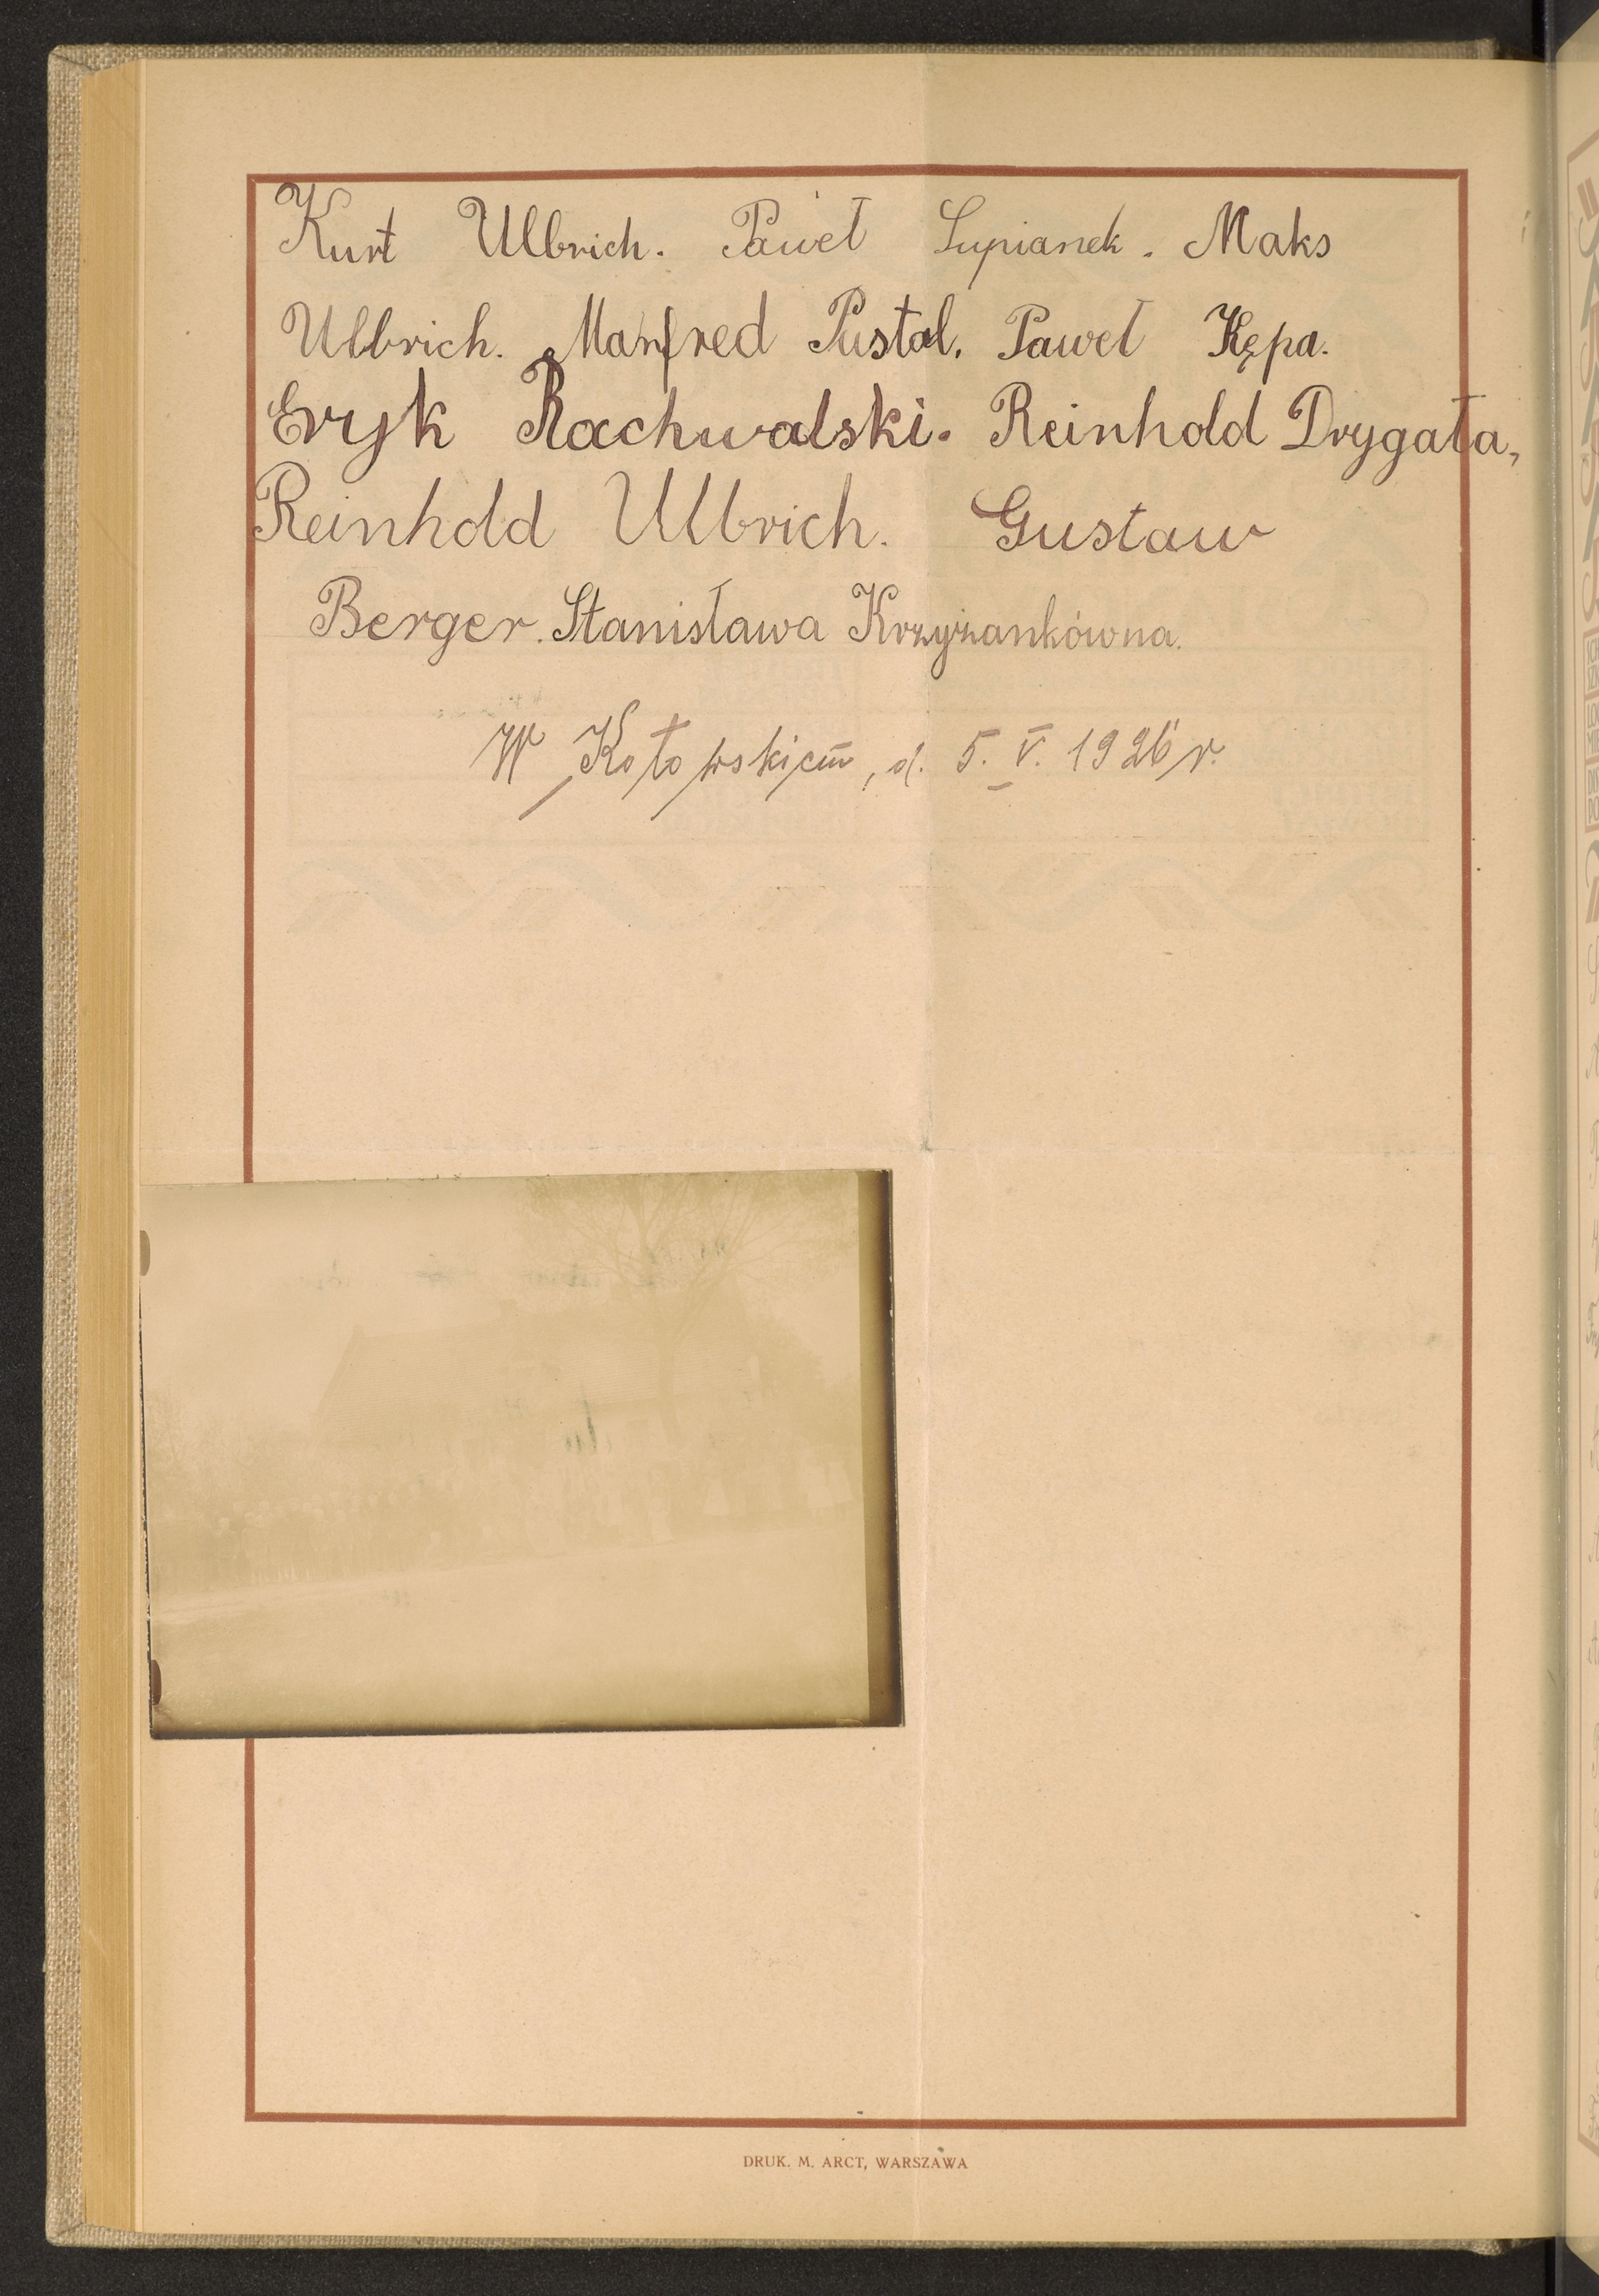 Kurt Ulbrich. Paweł Lupianek. Maks
Ulbrich. Manfred Pustal. Paweł Kępa.
Eryk Rachwalski. Reinhold Drygała,
Reinhold Ulbrich. Gustaw
Berger. Stanisława Krzyżankówna.
W Kotowskiem, d. 5. V. 1926 r.
DRUK. M. ARCT, WARSZAWA